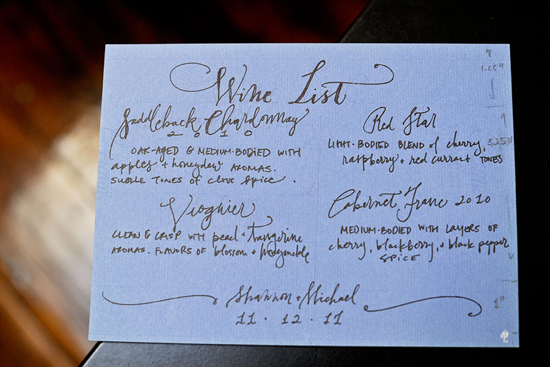 Wine List
Saddleback Chardonnay
2010
OAK-AGED & MEDIUM-BODIED WITH
apples + honeydew AROMAS.
SUBTLE TONES OF clove spice.
Viognier
CLEAN & CRISP WITH pear + tangerine
AROMAS. FLAVORS OF blossom + honeysuckle
Red Star
LIGHT-BODIED BLEND of cherry,
raspberry + red currant TONES
Cabernet Franc 2010
MEDIUM-BODIED WITH LAYERS OF
cherry, blackberry, + black pepper
SPICE
Shannon + Michael
11 · 12 · 11
1.25"
5.25"
1"